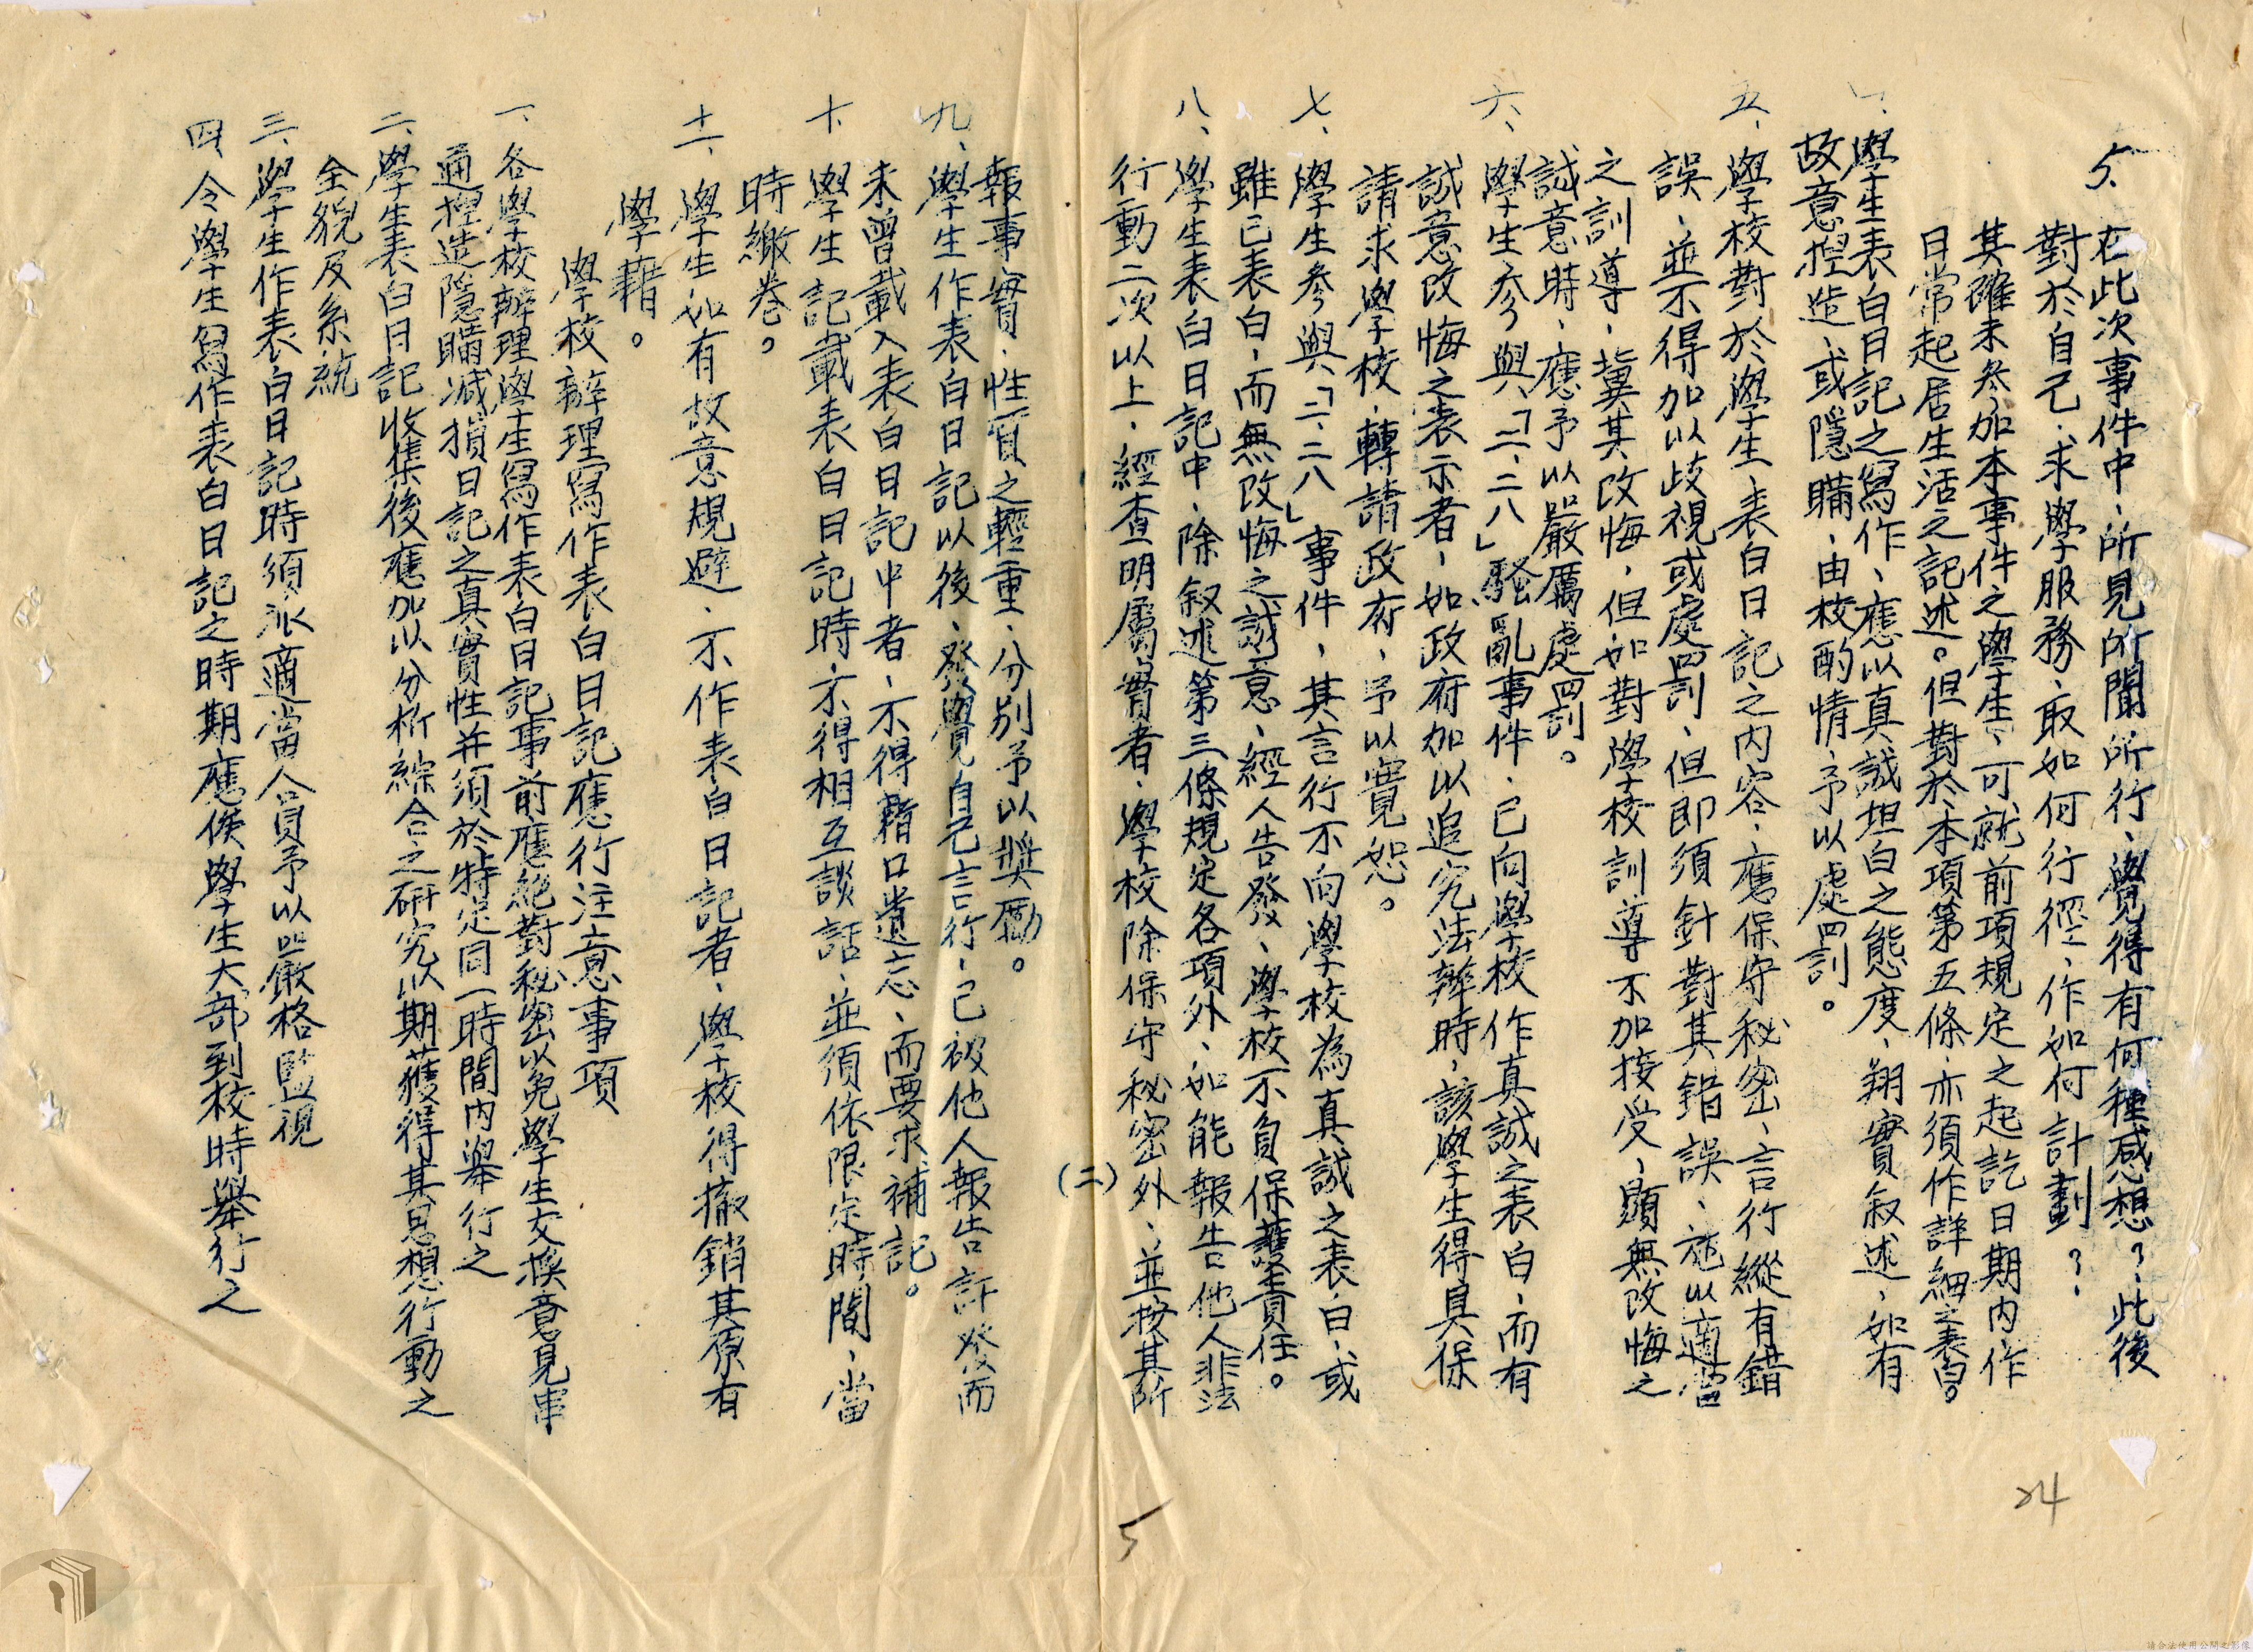 5. 在此次事件中、所見所聞所行、覺得有何種感想?、此後
對於自己、求學服務、取如何行徑、作如何計劃?
其確未參加本事件之學生、可就前項規定之起訖日期內、作
日常起居生活之記述。但對於本項第五條、亦須作詳細之表白。
學生表白日記之寫作、應以真誠坦白之態度、翔實叙述、如有
故意揑造、或隱瞞、由校酌情、予以處罰。
五、學校對於學生、表白日記之內容、應保守秘密、言行縱有錯
誤、並不得加以歧視或處罰、但即須針對其錯誤、施以適當
之訓導、冀其改悔、但如對學校訓導不加接受、顯無改悔之
誠意時、應予以嚴厲處罰。
六、學生參與「二、二八」騷亂事件、已向學校作真誠之表白、而有
誠意改悔之表示者、如政府加以追究法辦時、該學生得具保
請求學校、轉請政府、予以寬恕。
七、學生參與「二、二八」事件、其言行不向學校為真誠之表白、或
雖已表白、而無改悔之誠意、經人告發、學校不負保護責任。
八、學生表白日記中、除叙述第三條規定各項外、如能報告他人非法
行動二次以上、經查明屬實者、學校除保守秘密外、並按其所
(二)
報事實、性質之輕重、分別予以獎勵。
九、學生作表白日記以後、發覺自己言行、已被他人報告訐發而
未曾載入表白日記中者、不得藉口遺忘、而要求補記。
十、學生記載表白日記時、不得相互談話、並須依限定時間、當
時繳卷。
十一、學生如有故意規避、不作表白日記者、學校得撤銷其原有
學籍。
學校辦理寫作表白日記應行注意事項
一、各學校辦理學生寫作表白日記事前應絕對秘密以免學生交換意見串
通揑造隱瞞減損日記之真實性并須於特定同一時間內舉行之
二、學生表白日記收集後應加以分析綜合之研究以期獲得其思想行動之
全貌及系統
三、學生作表白日記時須派適當人員予以嚴格監視
四、令學生寫作表白日記之時期應俟學生大部到校時舉行之
24
5
請合法使用公開之影像